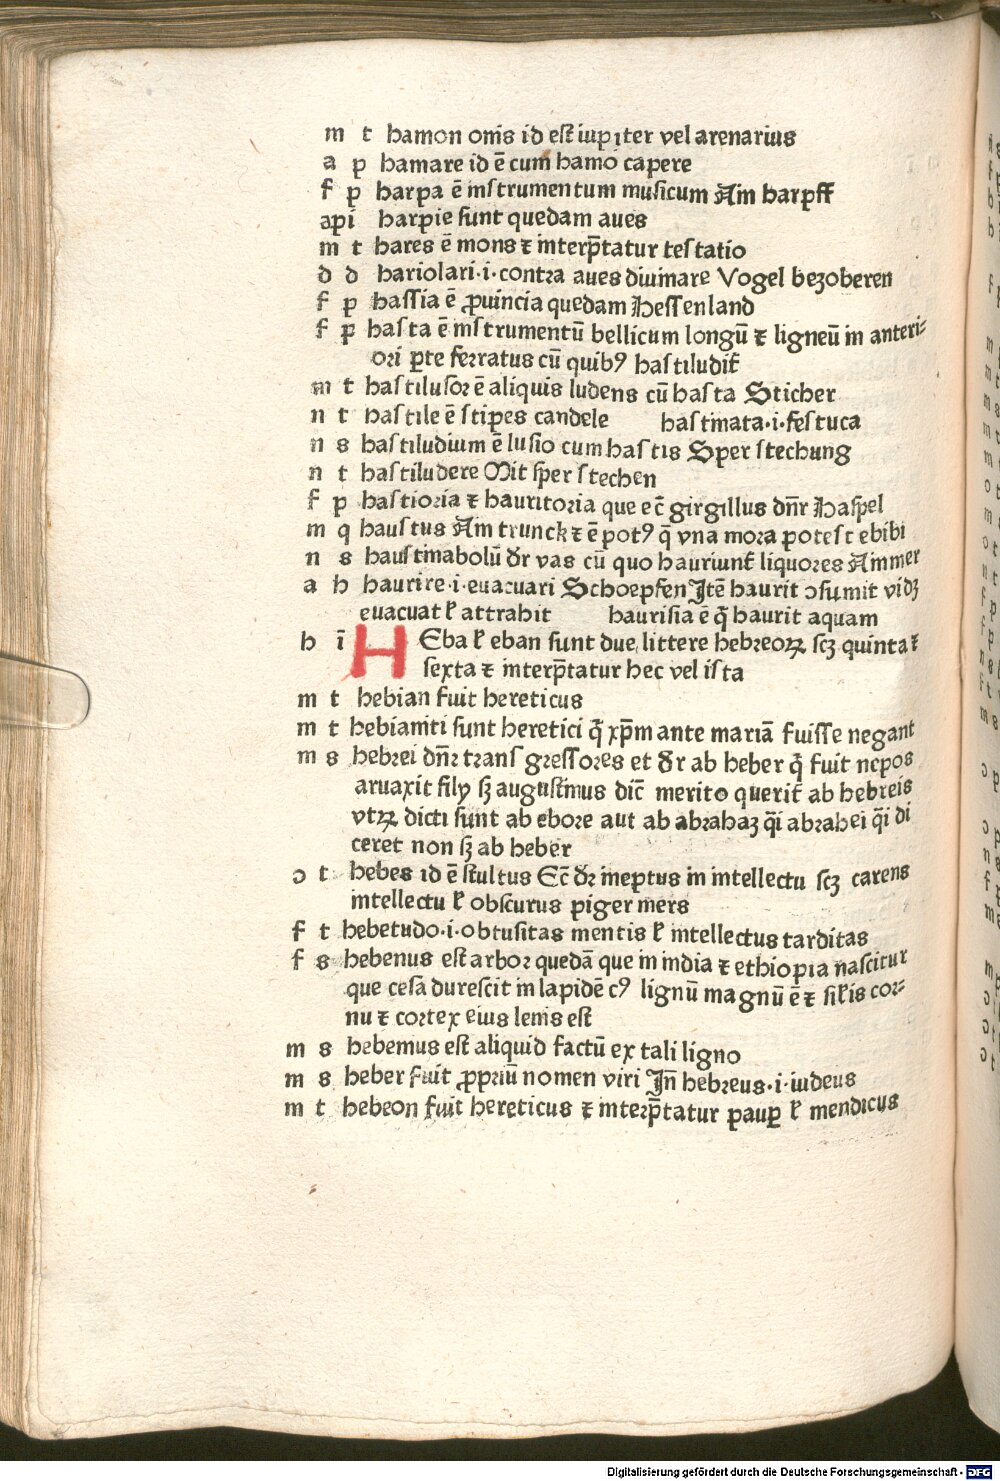 m t hamon onis id est iupiter vel arenarius
a p hamare id ē cum hamo capere
f p harpa ē instrumentum musicum Am harpff
api harpie sunt quedam aues
m t hares ē mons ⁊ interp̄tatur testatio
d d hariolari·i·contra aues diuinare Vogel bezoberen
f p hassia ē ꝓuincia quedam Hessenland
f p hasta ē instrumentū bellicum longū ⁊ ligneū in anteri⸗
ori ꝑte ferratus cū quibꝰ hastiludit᷑
m t hastilusor ē aliquis ludens cū hasta Sticher
n t hastile ē stipes candele hastinata·i·festuca
n s hastiludium ē lusio cum hastis Sper stechung
n t hastiludere Mit sper stechen
f p hastioria ⁊ hauritoria que ec̄ girgillus dn̄r Haspel
m q haustus Am trunck ⁊ ē potꝰ q̄ vna mora potest ebibi
n s haustinabolū dr vas cū quo hauriunt᷑ liquores Ammer
a h haurire·i·euacuari Schoepfen Itē haurit ↄsumit vidꝫ
euacuat ł attrahit haurisia ē q̄ haurit aquam
h ī HEba ł eban sunt due littere hebreoꝝ scꝫ quinta ⁊
sexta ⁊ interp̄tatur hec vel ista
m t hebian fuit hereticus
m t hebianiti sunt heretici q̄ xp̄m ante mariā fuisse negant
m s hebrei dn̄r transgressores et dr ab heber q̄ fuit nepos
aruaxit fily sꝫ augustinus dic̄ merito querit᷑ ab hebreis
vtꝝ dicti sunt ab ebore aut ab abrahaꝫ q̄i abrahei q̄i di
ceret non sꝫ ab heber
ↄ t hebes id ē stultus Ec̄ dr ineptus in intellectu scꝫ carens
intellectu ł obscurus piger iners
f t hebetudo·i·obtusitas mentis ł intellectus tarditas
f s hebenus est arbor quedā que in india ⁊ ethiopia nascitur
que cesa durescit in lapidē cꝰ lignū magnū ē ⁊ sił̄is cor⸗
nu ⁊ cortex eius lenis est
m s hebemus est aliquid factū ex tali ligno
m s heber fuit ꝓpriū nomen viri In̄ hebreus·i·iudeus
m t hebeon fuit hereticus ⁊ interp̄tatur pauꝑ ł mendicus
Digitalisierung gefördert durch die Deutsche Forschungsgemeinschaft - DFG